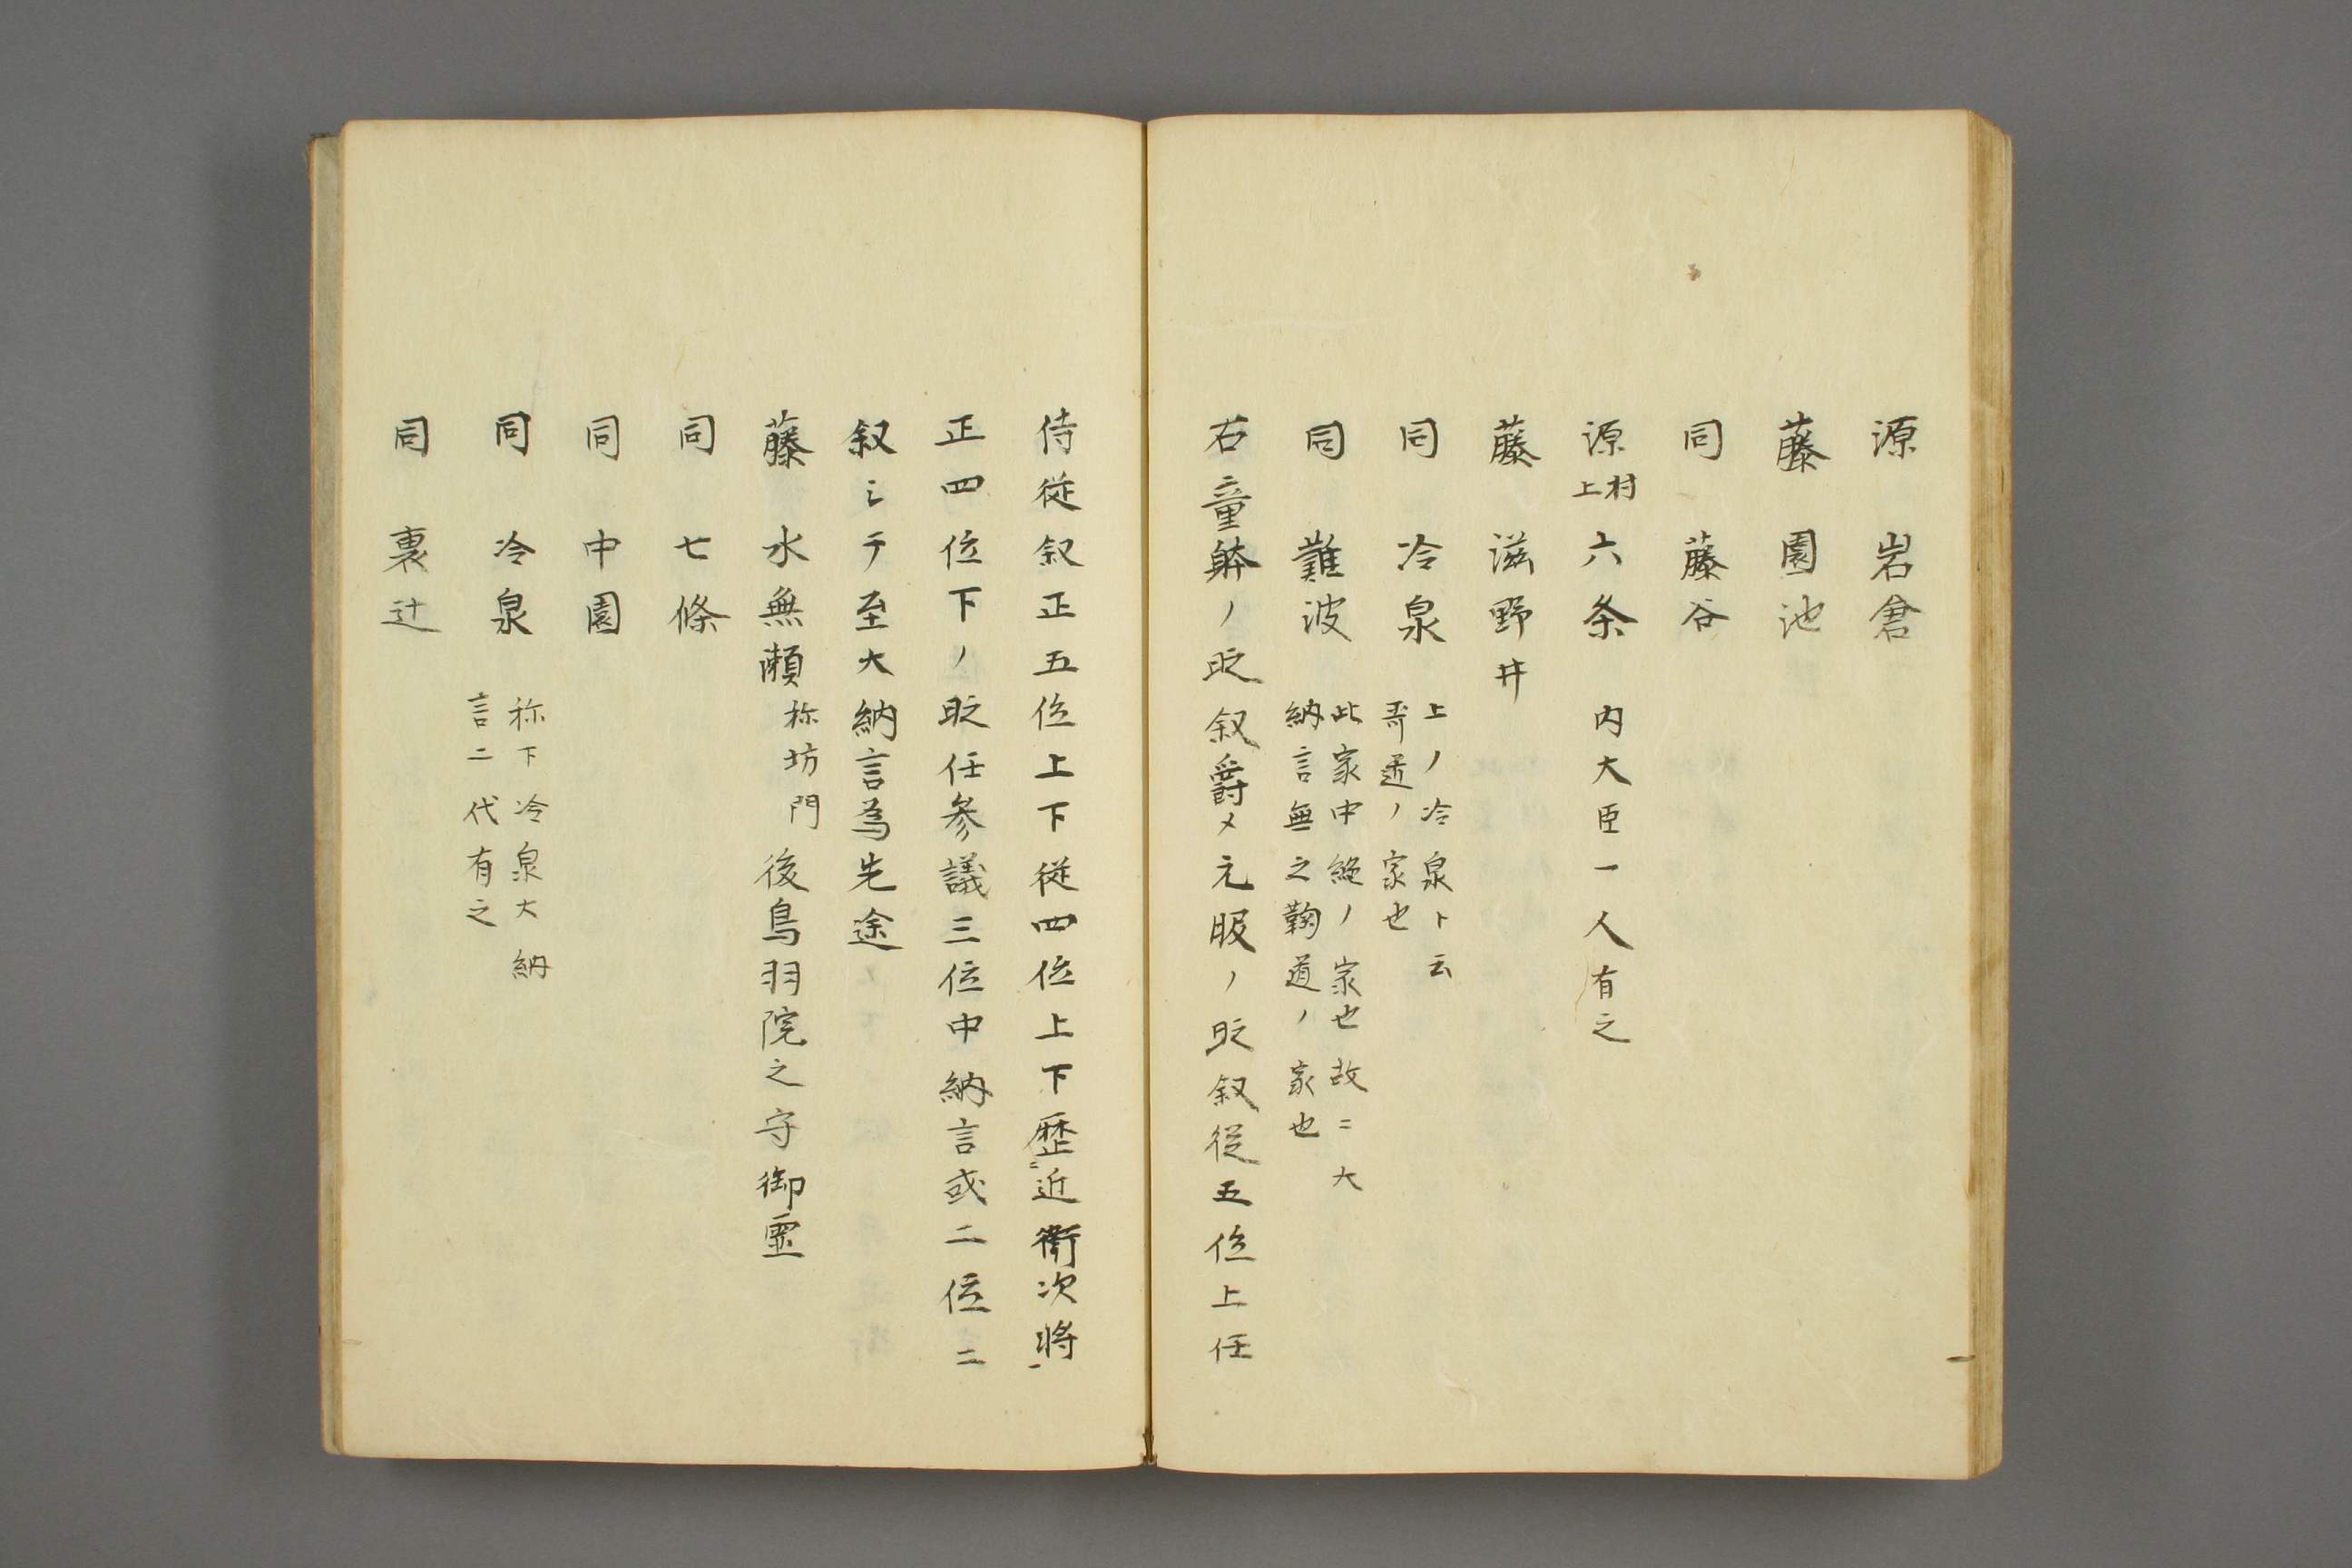 源 岩倉
藤 園池
同 藤谷
源 村上 六条 内大臣一人有之
藤 滋野井
同 冷泉 上ノ冷泉ト云
哥道ノ家也
同 難波 此家中絶ノ家也故ニ大
納言無之鞠道ノ家也
右童躰ノ時叙爵〆元服ノ時叙従五位上任
侍従叙正五位上下従四位上下歴近衛次将
正四位下ノ時任参議三位中納言或二位ニ
叙シテ至大納言為先途
藤 水無瀬 称坊門 後鳥羽院之守御霊
同 七條
同 中園
同 冷泉 称下冷泉大納
言二代有之
同 裏辻